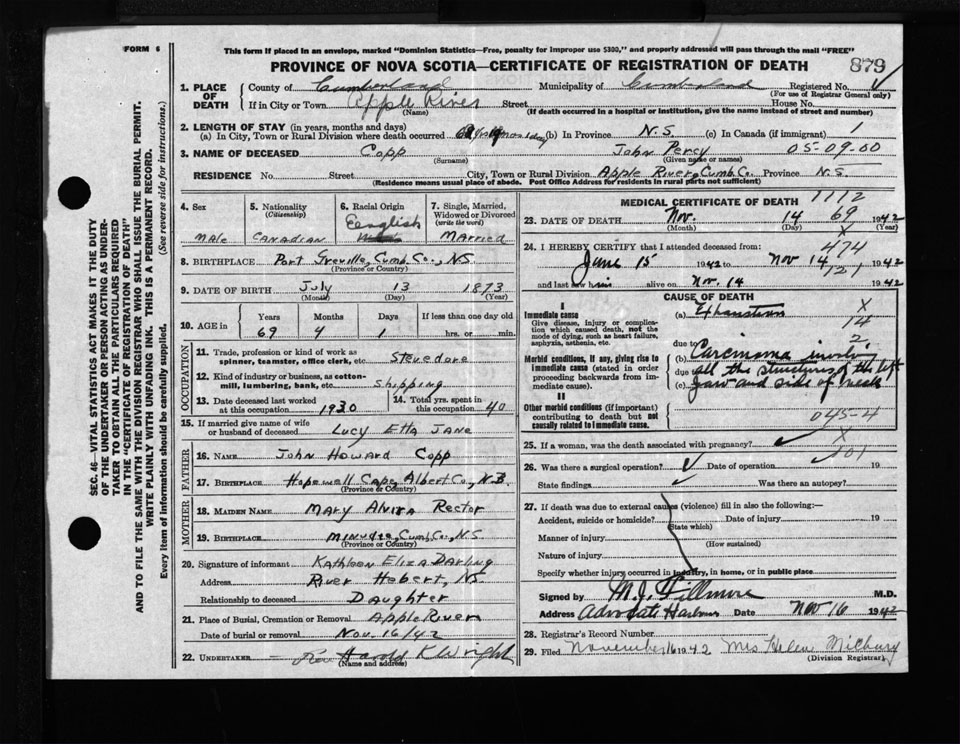 FORM 6
This form if placed in an envelope, marked "Dominion Statistics—Free, penalty for improper use $300," and properly addressed will pass through the mail "FREE"
PROVINCE OF NOVA SCOTIA—CERTIFICATE OF REGISTRATION OF DEATH
879
1. PLACE OF DEATH
County of Cumberland Municipality of Cumberland Registered No.
(For use of Registrar General only)
If in City or Town Apple River Street House No.
(Name) (If death occurred in a hospital or institution, give the name instead of street and number)
2. LENGTH OF STAY (in years, months and days)
(a) In City, Town or Rural Division where death occurred (b) In Province N.S. (c) In Canada (if immigrant) 1
3. NAME OF DECEASED Copp John Percy 05-09.00
(Surname) (Given name or names)
RESIDENCE No. Street City, Town or Rural Division Apple River, Cumb. Co. Province N.S.
(Residence means usual place of abode. Post Office Address for residents in rural parts not sufficient)
4. Sex
Male
5. Nationality
(Citizenship)
Canadian
6. Racial Origin
English
7. Single, Married, Widowed or Divorced
(write the word)
Married
8. BIRTHPLACE Port Greville, Cumb. Co., N.S.
(Province or Country)
9. DATE OF BIRTH July 13 1873
(Month) (Day) (Year)
10. AGE in
Years Months Days If less than one day old
69 4 1 hrs. or min.
OCCUPATION
11. Trade, profession or kind of work as spinner, teamster, office clerk, etc. Stevedore
12. Kind of industry or business, as cotton-mill, lumbering, bank, etc. Shipping
13. Date deceased last worked at this occupation 1930
14. Total yrs. spent in this occupation 40
15. If married give name of wife or husband of deceased Lucy Etta Jane
FATHER
16. NAME John Howard Copp
17. BIRTHPLACE Hopewell Cape, Albert Co., N.B.
(Province or Country)
MOTHER
18. MAIDEN NAME Mary Alvira Rector
19. BIRTHPLACE Minudie, Cumb. Co., N.S.
(Province or Country)
20. Signature of informant Kathleen Eliza Darling
Address River Hebert, NS
Relationship to deceased Daughter
21. Place of Burial, Cremation or Removal Apple River
Date of burial or removal Nov. 16/42
22. UNDERTAKER Rev Harold K Wright
(Name and address)
MEDICAL CERTIFICATE OF DEATH 1112
23. DATE OF DEATH Nov. 14 69 1942
(Month) (Day) (Year)
X
24. I HEREBY CERTIFY that I attended deceased from: 474
June 15 1942 to Nov 14 1942
121
and last saw him alive on Nov. 14 1942
CAUSE OF DEATH
I
Immediate cause
Give disease, injury or complication which caused death, not the mode of dying, such as heart failure, asphyxia, asthenia, etc.
(a) Exhaustion X
14
due to 2
Morbid conditions, if any, giving rise to immediate cause (stated in order proceeding backwards from immediate cause).
(b) Carcinoma involv.
due to all the structures of the left
(c) jaw and side of neck
II
Other morbid conditions (if important) contributing to death but not causally related to immediate cause.
045-4
25. If a woman, was the death associated with pregnancy? X
26. Was there a surgical operation? Date of operation 19
State findings Was there an autopsy?
27. If death was due to external causes (violence) fill in also the following:—
Accident, suicide or homicide? Date of injury 19
(State which)
Manner of injury
(How sustained)
Nature of injury
Specify whether injury occurred in industry, in home, or in public place
Signed by M.J. Fillmore M.D.
Address Advocate Harbour Date Nov 16 1942
28. Registrar's Record Number
29. Filed November 16 1942 Mrs Helen Milbury
(Division Registrar)
SEC. 46—VITAL STATISTICS ACT MAKES IT THE DUTY
OF THE UNDERTAKER OR PERSON ACTING AS UNDER-
TAKER TO OBTAIN ALL THE PARTICULARS REQUIRED
IN THE "CERTIFICATE OF REGISTRATION OF DEATH"
AND TO FILE THE SAME WITH THE DIVISION REGISTRAR WHO SHALL ISSUE THE BURIAL PERMIT.
WRITE PLAINLY WITH UNFADING INK. THIS IS A PERMANENT RECORD.
Every item of information should be carefully supplied. (See reverse side for instructions.)